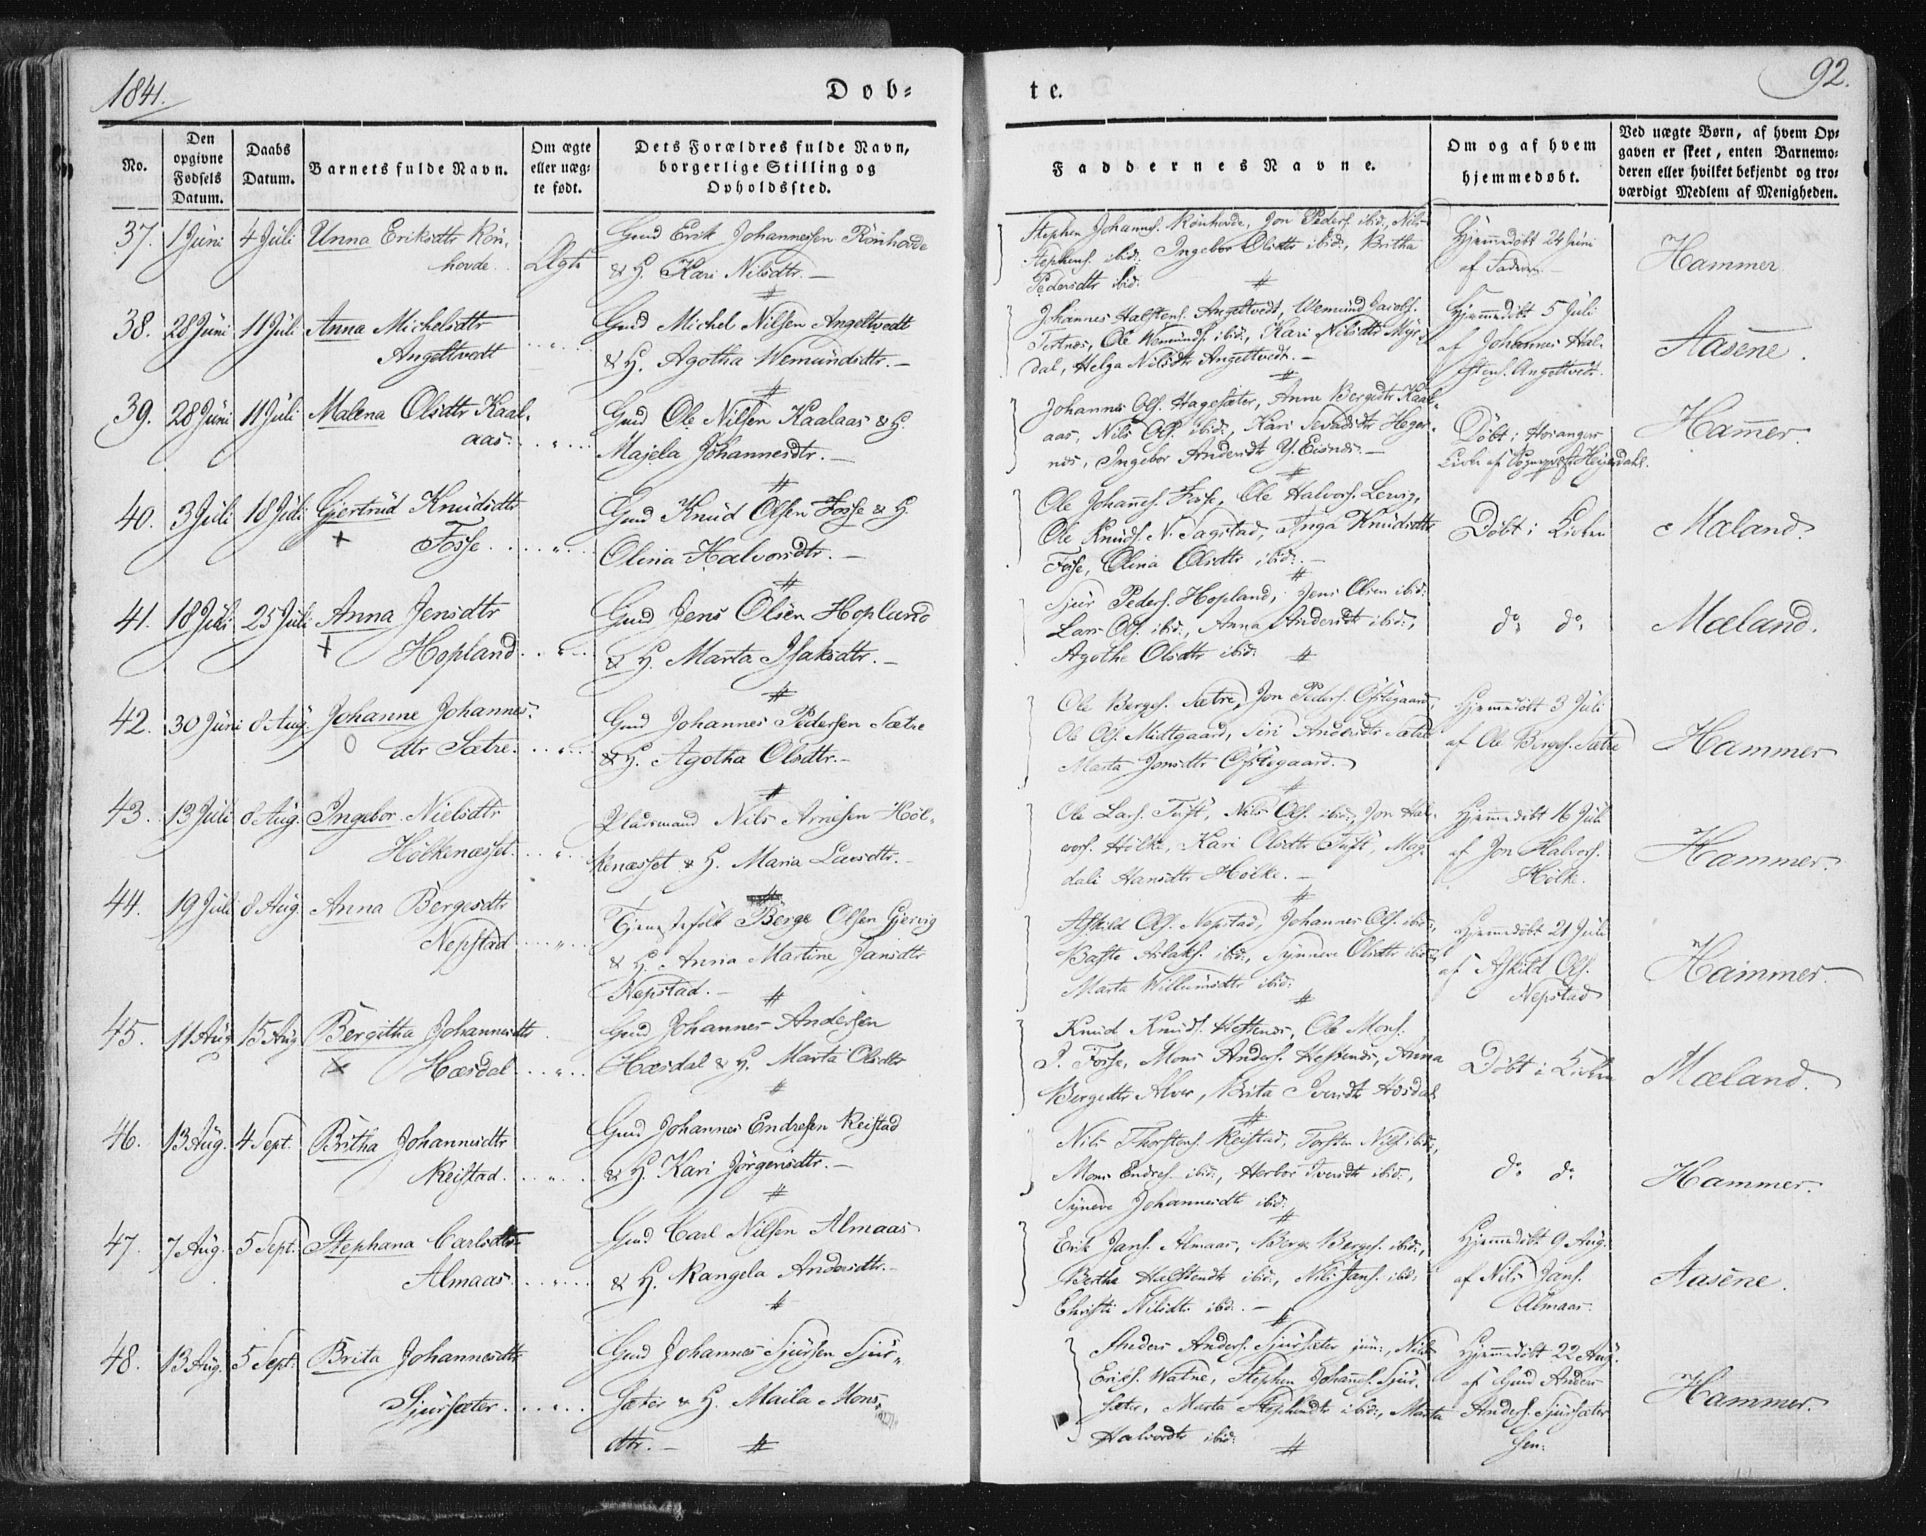 1841.
Døb-
te.
92.
No.
Den opgivne Fødsels Datum.
Daabs Datum.
Barnets fulde Navn.
Om ægte eller uægte født.
Dets Forældres fulde Navn, borgerlige Stilling og Opholdssted.
Faddernes Navne.
Om og af hvem hjemmedøbt.
Ved uægte Børn, af hvem Opgaven er skeet, enten Barnemoderen eller hvilket bekjendt og troværdigt Medlem af Menigheden.
37. 1 Juni 4 Juli Unna Eriksdtr Rön-
hovde. Ægte
Gmd Erik Johannessen Rönhovde
& H. Kari Nilsdtr. —
Stephen Johannes. Rönhovde, Jon Peders. ibid:, Nils
Stephens. ibid:, Ingebor Olsdtr ibid:, Britha
Pedersdtr ibid:
Hjemmedöbt 24 Juni
af Faderen
Hammer
38. 28 Juni 11 Juli Anna Michelsdtr
Angeltvedt
Gmd Michel Nilsen Angeltvedt
& H. Agotha Wemundsdtr. —
Johannes Halstens. Angeltvedt, Wemund Jacobs.
Tertnæs, Ole Wemunds. ibid:, Kari Nilsdtr Myr-
dal, Helga Nilsdtr Angeltvedt. —
Hjemmedöbt 5 Juli
af Johannes Hal-
stens. Angeltvedt.
Aasene.
39. 28 Juni 11 Juli Malena Olsdtr Kaal-
aas.
Gmd Ole Nilsen Kaalaas & H.
Majela Johannesdtr. —
Johannes Ols. Hagesæter, Anne Bergesdtr Kaal-
aas, Nils Ols. ibid:, Kari
Ingebor Andersdtr Y. Eisnes. —
Döbt i
Kirke af
Hammer.
40. 3 Juli 18 Juli Gjertrud Knudsdtr
+ Fosse.
Gmd Knud Olsen Fosse & H.
Olina Halvorsdtr. —
Ole Johannes. Fosse, Ole Halvors. Lervig,
Ole Knuds. N. Sagstad, Inga Knudsdtr
Fosse, Olina Olsdtr ibid:. —
Döbt i Kirken
Mæland.
41. 18 Juli 25 Juli Anna Jensdtr
+ Hopland.
Gmd Jens Olsen Hopland
& H. Marta Isaksdtr. —
Sjur Peders. Hopland, Jens Olsen ibid:
Lars Ols. ibid:, Anna Andersdtr ibid:,
Agothe Olsdtr ibid:
do do
Mæland.
42. 30 Juni 8 Aug. Johanne Johannes-
o dtr Sætre.
Gmd Johannes Pedersen Sætre
& H. Agotha Olsdtr. —
Ole Berges. Sætre, Jon Peders. Östegaard,
Ole Ols. Midtgaard, Siri Andersdtr Sætre
Marta Jonsdtr Östegaard.
Hjemmedöbt 3 Juli
af Ole Berges. Sætre
Hammer
43. 13 Juli 8 Aug. Ingebor Nielsdtr
Hölkenæsset.
Pladsmand Nils Arnesen Höl-
kenæsset & H. Maria Larsdtr. —
Ole Lars. Tuft, Nils Ols. ibid:, Jon Hal-
vors. Hölke, Kari Olsdtr Tuft, Mag-
dali Hansdtr Hölke. —
Hjemmedöbt 16 Juli
af Jon Halvors.
Hölke.
Hammer.
44. 19 Juli 8 Aug. Anna Bergesdtr
Nepstad
Tjenestefolk Berge Olsen Gjervig
& H. Anna Martine Jansdtr
Nepstad. —
Askild Ols. Nepstad, Johannes Ols. ibid:,
Baste Aslaks. ibid:, Synneve Olsdtr ibid:,
Marta Willumsdtr ibid:
Hjemmedöbt 21 Juli
af Askild Ols.
Nepstad
Hammer.
45. 11 Aug. 15 Aug. Bergitha Johannesdtr
Hæsdal
Gmd Johannes Andersen
Hæsdal & H. Marta Olsdtr
Knud Knuds. Heftenes, Ole Mons.
I. Fosse, Mons Anders. Heftenes, Anna
Bergesdtr Alver, Brita Iversdtr Hæsdal
Döbt i Kirken
Mæland.
46. 13 Aug. 4 Sept. Britha Johannesdtr
Reistad.
Gmd Johannes Endresen Reistad
& H. Kari Jörgensdtr. —
Nils Thorstens. Reistad, Torsten Nils. ibid:,
Mons Endres. ibid:, Herbor Iversdtr ibid:,
Syneve Johannesdtr ibid:
do do
Hammer.
47. 7 Aug. 5 Sept. Stephana Carlsdtr
Almaas.
Gmd Carl Nilsen Almaas
& H. Rangela Andersdtr. —
Erik Jans. Almaas, Berge Berges. ibid:,
Bertha Halstensdtr ibid:, Nils Jans. ibid:,
Christi Nilsdtr ibid:. —
Hjemmedöbt 9 Aug.
af Nils Jans.
Almaas.
Aasene.
48. 13 Aug. 5 Sept. Brita Johannesdtr
Sjursæter.
Gmd Johannes Sjursen Sjur-
sæter & H. Maila Mons-
dtr. —
Anders Anders. Sjursæter jun:, Niels
Eriks. Watne, Stephen Johannes. Sjur-
sæter, Marta Stephensdtr ibid:, Marta
Halvorsdtr ibid:
Hjemmedöbt 22 Aug.
af Gmd Anders
Anders. Sjursæter
sen:
Hammer.